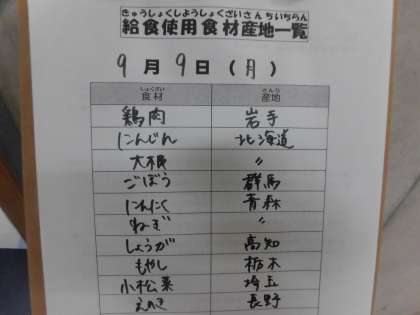 きゅうしょくしようしょくざいさんちいちらん
給食使用食材産地一覧
9月9日(月)
しょくざい さんち
食材 産地
鶏肉 岩手
にんじん 北海道
大根 〃
ごぼう 群馬
にんにく 青森
ねぎ 〃
しょうが 高知
もやし 栃木
小松菜 埼玉
えのき 長野